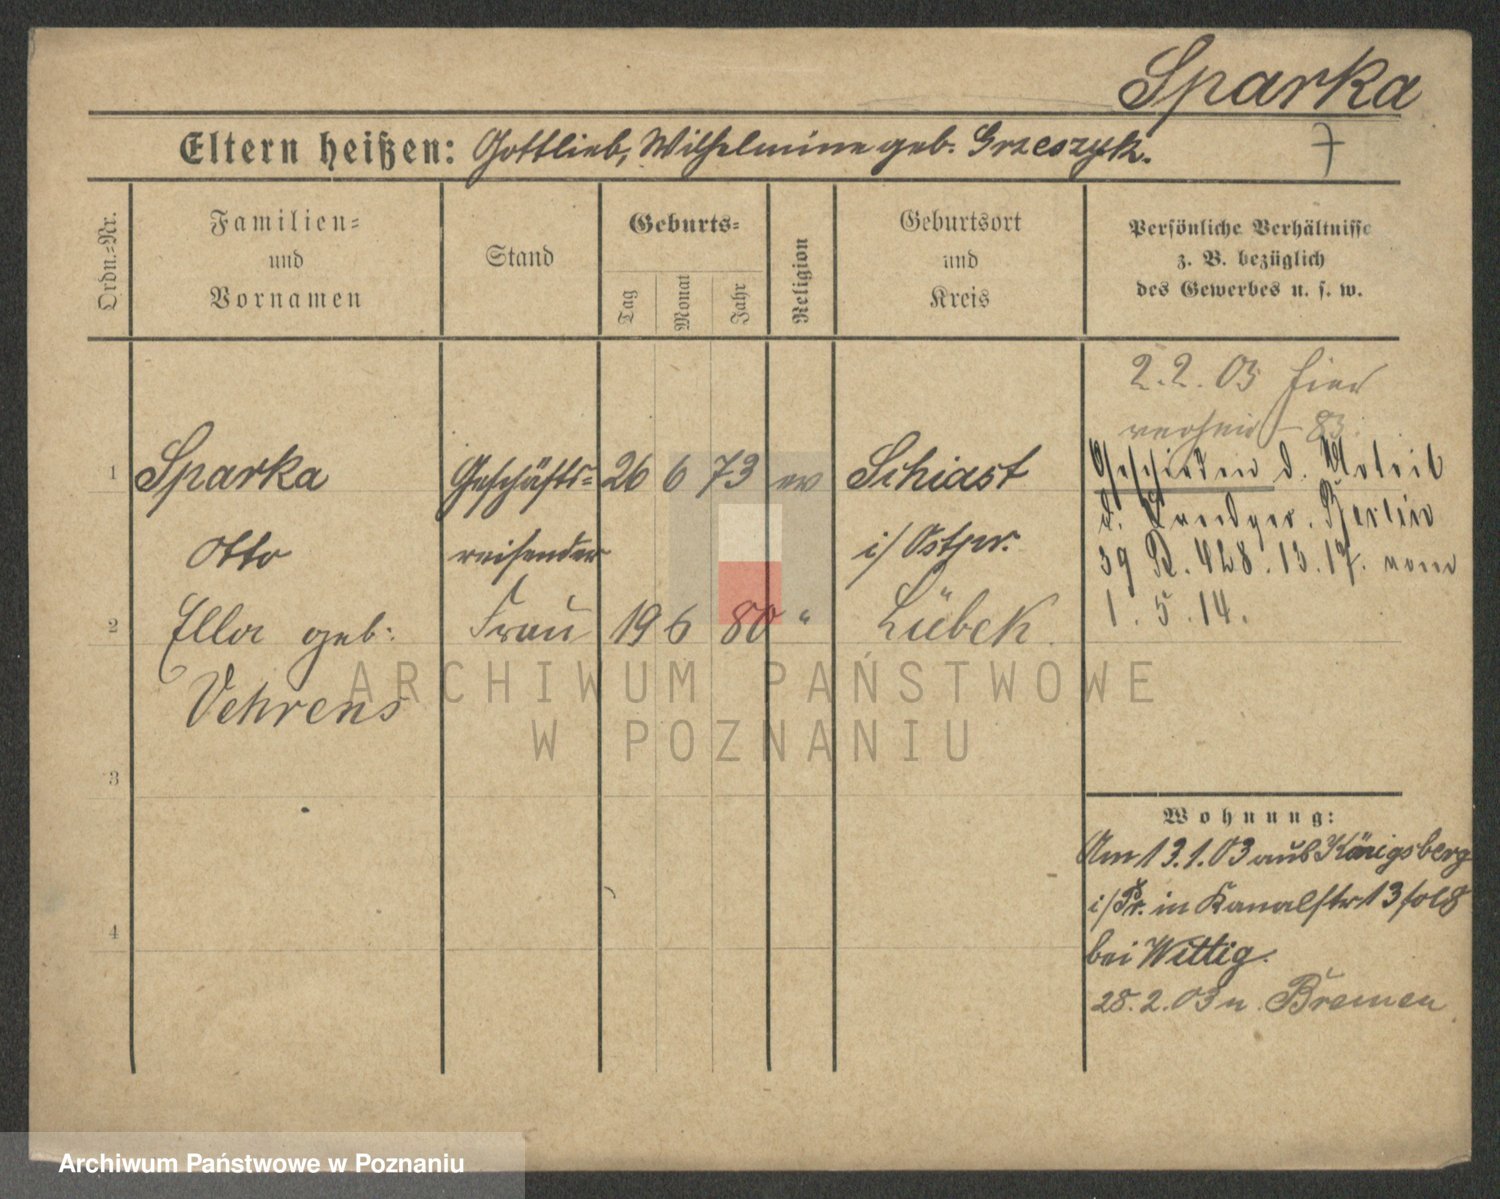 Sparka
Eltern heißen: Gottlieb, Wilhelmine geb. Grzeszyk.
7
Ordn.=Nr.
Familien=
und
Vornamen
Stand
Geburts=
Tag
Monat
Jahr
Religion
Geburtsort
und
Kreis
Persönliche Verhältnisse
z. B. bezüglich
des Gewerbes u. s. w.
2.2.03 hier
verheir – 83
1 Sparka Geschäfts= 26 6 73 ev Schiast
Otto reisender i/ Ostpr.
Geschieden d. Urteil
d. Landger. Berlin
39 R. 428.13.17. vom
1.5.14.
2 Ella geb: Frau 19 6 80 " Lübek
Vehrens
3
4
Wohnung:
Am 13.1.03 aus Königsberg
i/Pr. in Kanalstr 13
bei Wittig.
28.2.03 n. Bremen
ARCHIWUM PAŃSTWOWE
W POZNANIU
Archiwum Państwowe w Poznaniu